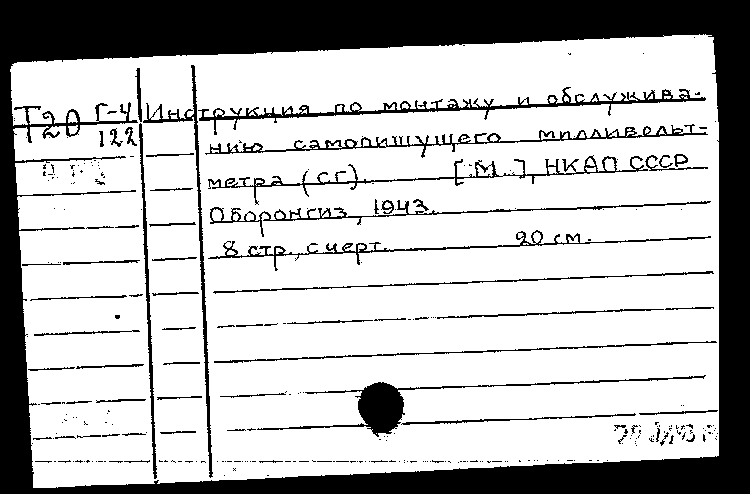 Т20 Г-4 Инструкция по монтажу и обслужива-
122 нию самопишущего милливольт-
метра (СГ). [М.], НКАП СССР
Оборонгиз, 1943.
8 стр., с черт. 20 см.